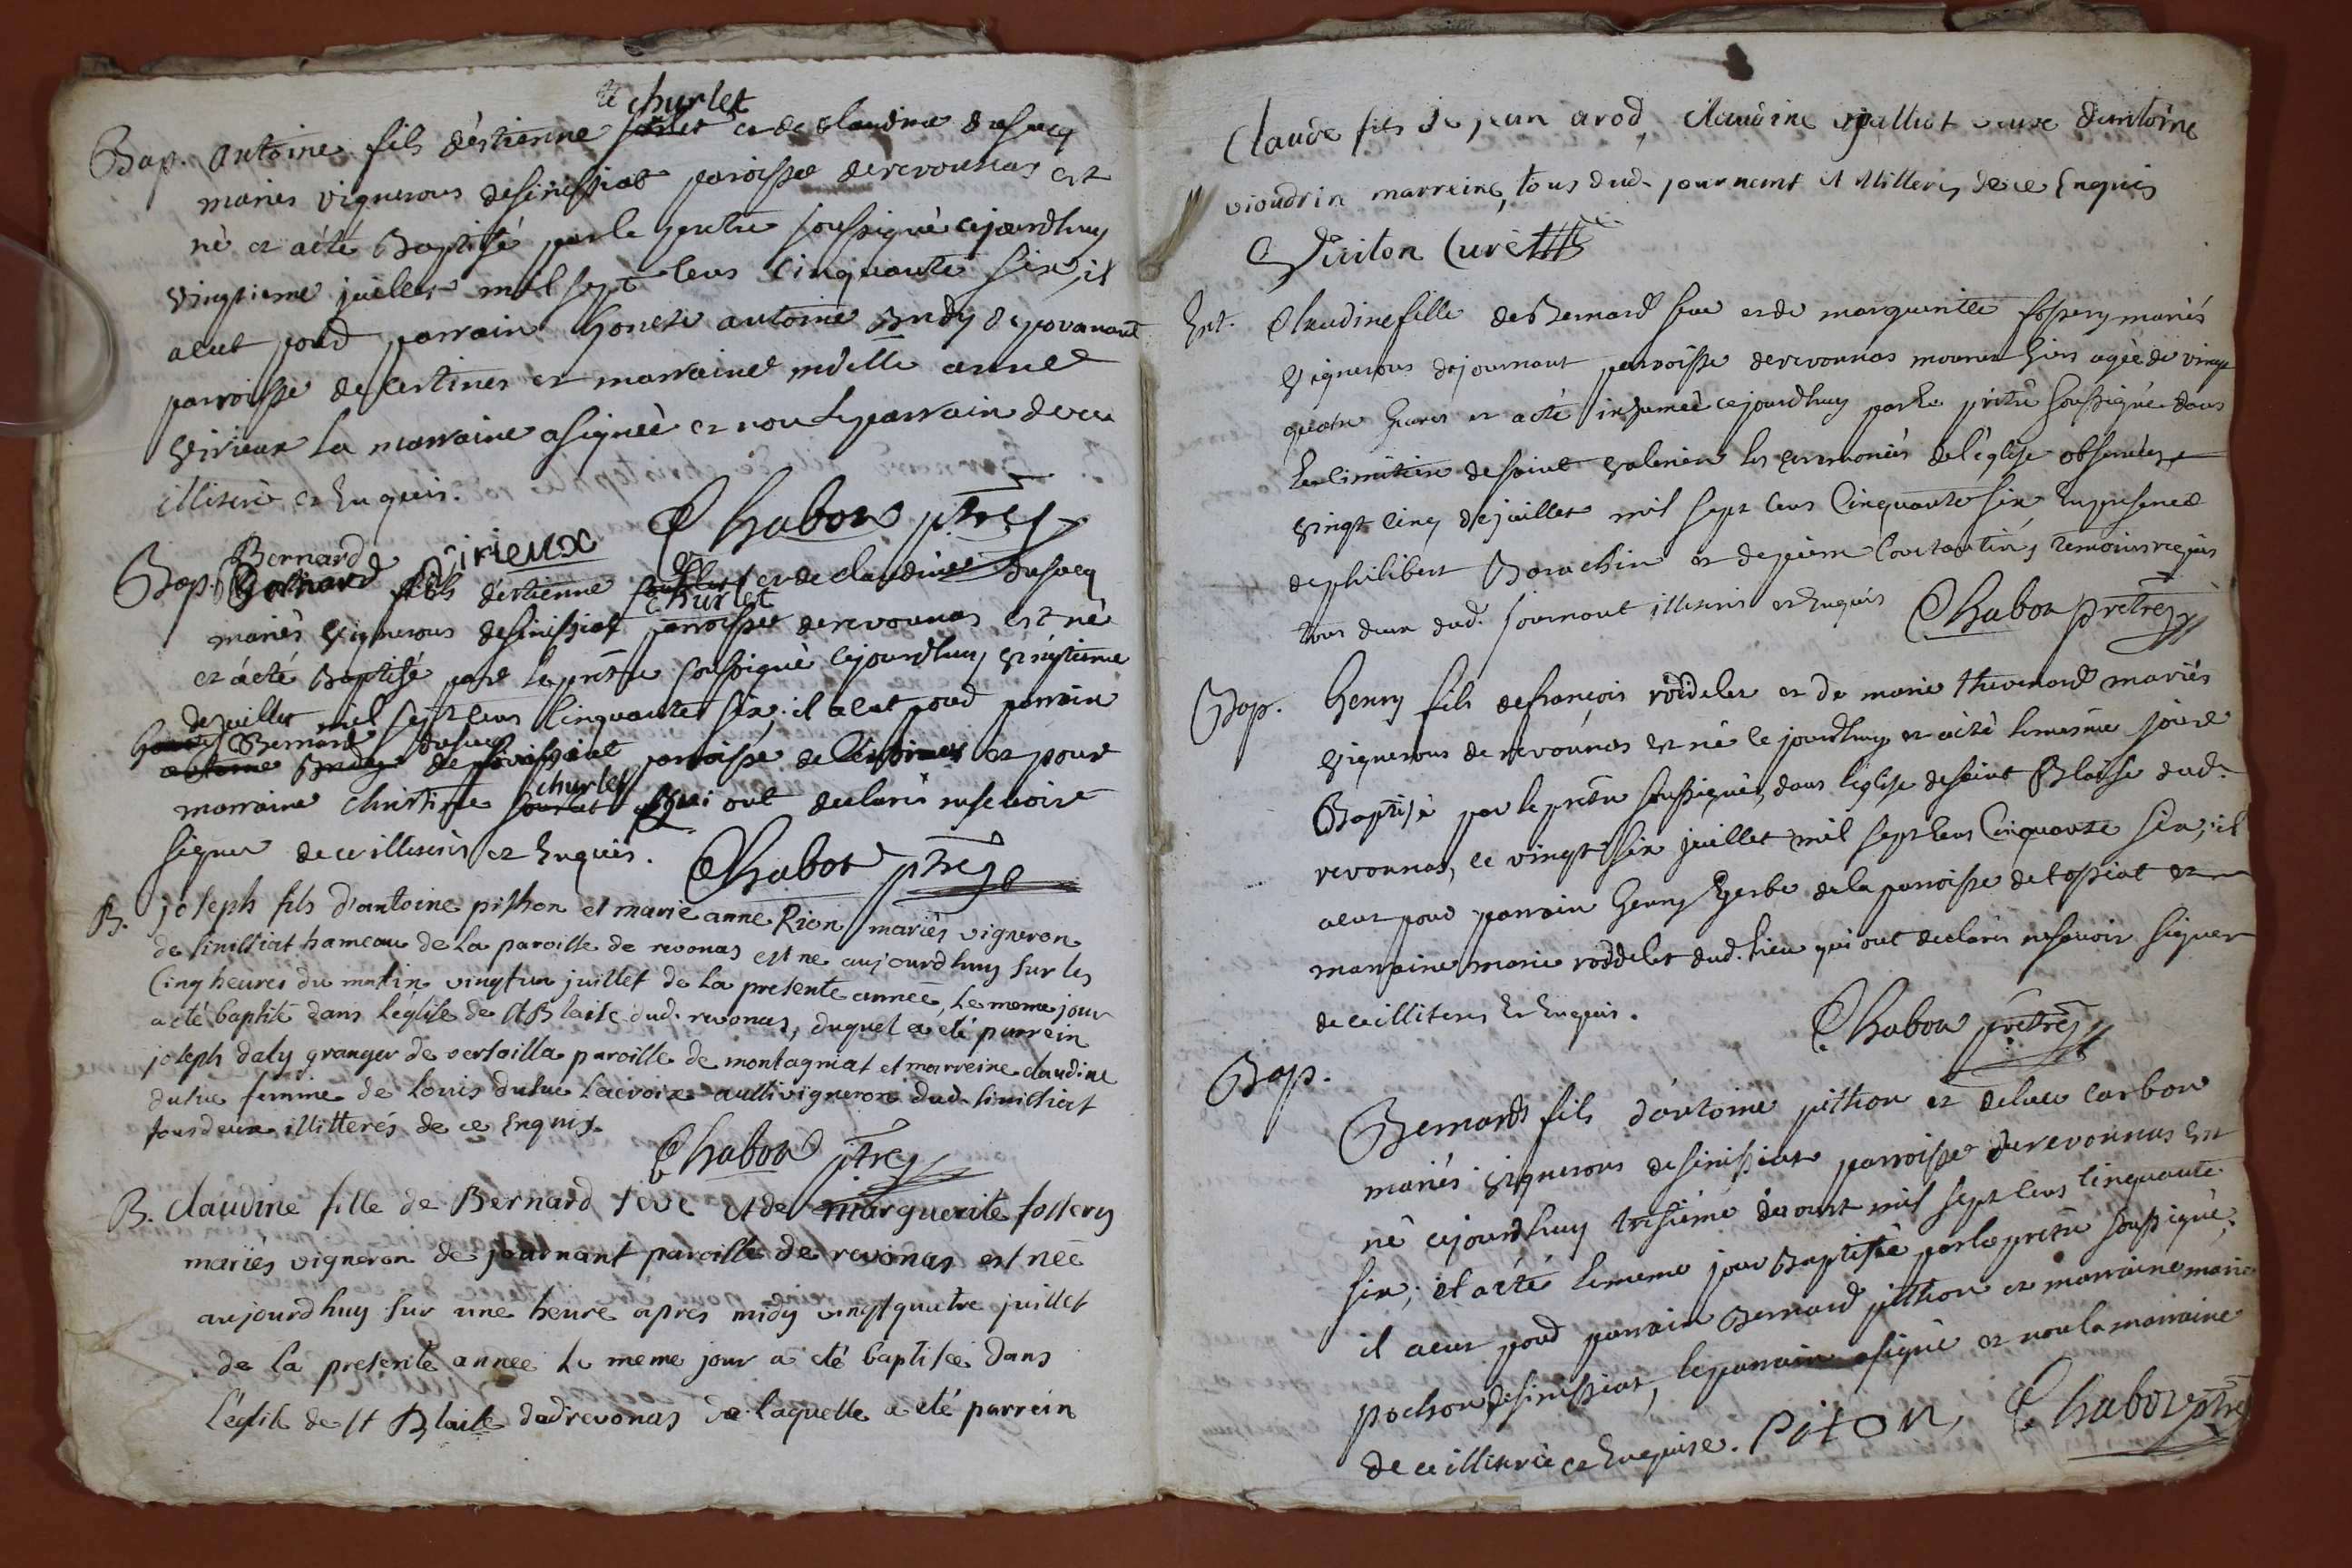 churlet
Bap. antoine fils d'éstienne et de claudine dusucq
mariés vignerons desinissiat paroisse derevonnas est
né et aété Baptisé par le prêtre soussigné cejourdhuy
vingtieme juillet mil sept cens Cinquante six, il
aeut pourd parrain honeste antoine Brudy
parroisse de Certines et marraine mdelle anne
Sirieux la marraine asigneé et non le parrain dece
illiteré et Enquis.
Chabon ptre
Sirieux
Bernard
Bap. fils d'éstienne et de claudine dusucq
churlet
mariés vignerons desinissiat parroisse derevonnas est né
et áété Baptisé par le prêtre soussigné cejourdhuy vingtieme
dejuillet mil sept cens Cinquante six; il aeut pourd parrain
Bernard dusucq
parroisse de et pour
churlet
marraine christine qui ont declarés nesavoire
signer de ce illiterés et Enquis. Chabon ptre
B. joseph fils d'antoine pithon et marie anne Rion mariés vigneron
de sinissiat hameau de la paroisse de revonas est ne aujourdhuy sur les
Cinq heures du matin vingtun juillet de la presente année, le meme jour
a été baptisé dans l'église de st Blaise dud. revonas, duquel a été parrein
joseph daly granger de versailla paroisse de montagniat et marreine claudine
duluc femme de louis duluc lacroix aussi vigneron dud. sinissiat
tousdeux illitterés de ce Enquis.
Chabon ptre
B. Claudine fille de Bernard seve et de marguerite fossery
mariés vigneron de journant paroisse de revonas est néé
aujourdhuy sur une heure apres midy vingtquatre juillet
de la presente année le meme jour a été baptisée dans
l'église de st Blaise dudrevonas de laquelle a été parrein
Claude fils de jean arod, claudine veuve d'antoine
vioudrin marreine, tous dud. journant illitterés de ce Enquis
Piriton Curé
Ent. Claudine fille de Bernard seve et de marguerite fossery mariés
vignerons dejournant parroisse derevonnas mourut hier agée de vingt
quatre heures et aété inhumeé cejourdhuy par le prêtre soussigné dans
le cimitière desaint valerien les ceremoniés del'église observées,
vingt cinq dejuillet mil sept cens Cinquante six En presence
dephilibert Borachin et depierre Constantin, temoins requis
tous deux dud. journant illiterés et Enquis Chabon pretre
Bap. henry fils defrançois roddelet et de marie thevenard mariés
vignerons de revonnas est né cejourdhuy et aété lemesme jour
Baptisé par le prêtre soussigné, dans l'eglise desaint Blaise dud.
revonnas, ce vingt six juillet mil sept cens Cinquante six; il
aeut pourd parrain henry gerbe dela parroisse detossiat et
marraine marie roddelet dud. lieu qui ont declarés nesavoir signer
de ce illiterés Et Enquis.
Chabon pretre
Bap.
Bernard fils d'antoine pithon et deluce carbon
mariés vignerons desinissiat parroisse derevonnas est
né cejourdhuy tresieme d'aoust mil sept cens cinquante
six; et aété lememe jour Baptisé par leprêtre soussigné;
il aeut pourd parrain Bernard pithon et marraine marie
pochon desinissiat, leparrain asigné et non la marraine
de ce illiterée et Enquise. PitOn, Chabon ptre